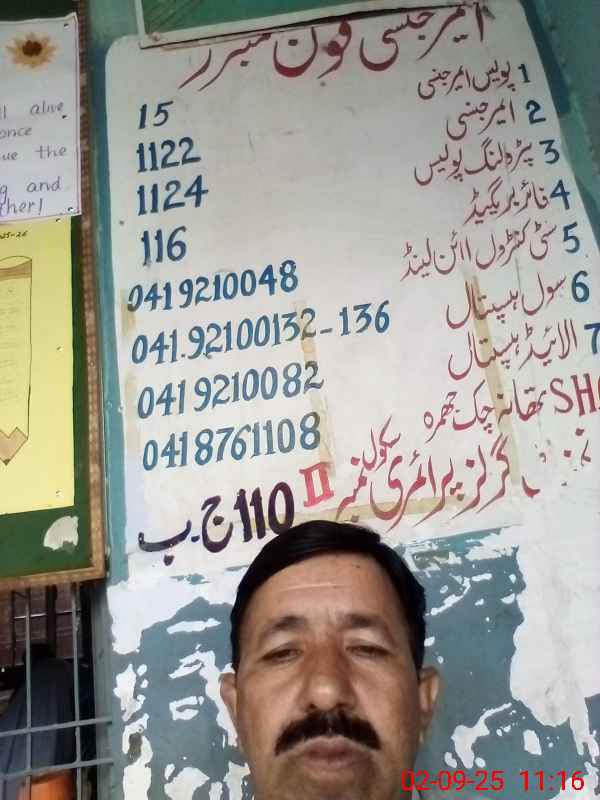 ایمرجنسی فون نمبرز
1 پولیس ایمرجنسی 15
2 ایمرجنسی 1122
3 پٹرولنگ پولیس 1124
4 فائر بریگیڈ 116
5 سٹی کنٹرول اائن لینڈ 0419210048
6 سول ہسپتال 041.92100132-136
7 الائیڈ ہسپتال 0419210082
SH تھانہ چک جھمرہ 0418761108
گرلز پرائمری سکول نمبر II 110 ج.ب
ll alive
once
ue the
g and
ther!
25-26
02-09-25 11:16